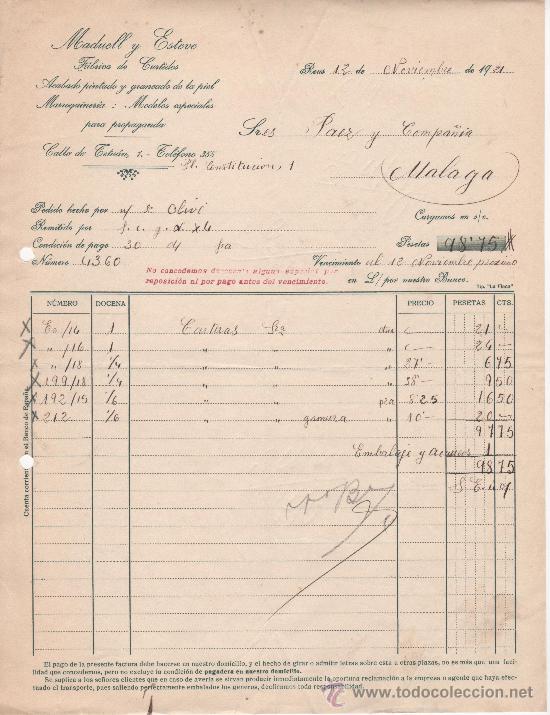 Maduell y Esteve
Fábrica de Curtidos
Acabado pintado y graneado de la piel
Marroquinería : Modelos especiales
para propaganda
Calle de Tetuán, 1. - Teléfono 355
Pl. Constitucion, 1
Reus 12 de Noviembre de 1931
Sres Paez y Compañia
Malaga
Pedido hecho por n/ S. Olivé
Remitido por p. c. g. d. x4
Condición de pago 30 d/ fa
Número 4360
Cargamos en s/c.
Pesetas 98'75
Vencimiento al 12 Noviembre proximo
en L/ por nuestro Banco.
Tip. "La Fleca"
No concedemos descuento alguno especial por
reposición ni por pago antes del vencimiento.
NÚMERO DOCENA PRECIO PESETAS CTS.
Eo/14 1 Carteras Sra dna c — 21 —
" /16 1 " " " c — 24 —
" /18 1/4 " " " 27'— 6 75
199/18 1/4 " " " 38'— 9 50
192/15 1/6 " " pza 8'25 16 50
212 1/6 " gamuza " 10'— 20 —
97 75
Embalaje y acarreo 1
98 75
S. E. u O.
Cuenta corriente en el Banco de España
El pago de la presente factura debe hacerse en nuestro domicilio, y el hecho de girar o admitir letras sobre esta u otras plazas, no es más que una faci-
lidad que concedemos, pero no excluye la condición de pagadera en nuestro domicilio.
Se suplica a los señores clientes que en caso de avería se sirvan producir inmediatamente la oportuna reclamación a la empresa o agente que haya efec-
tuado el transporte, pues saliendo perfectamente embalados los géneros, declinamos toda responsabilidad.
www.todocoleccion.net